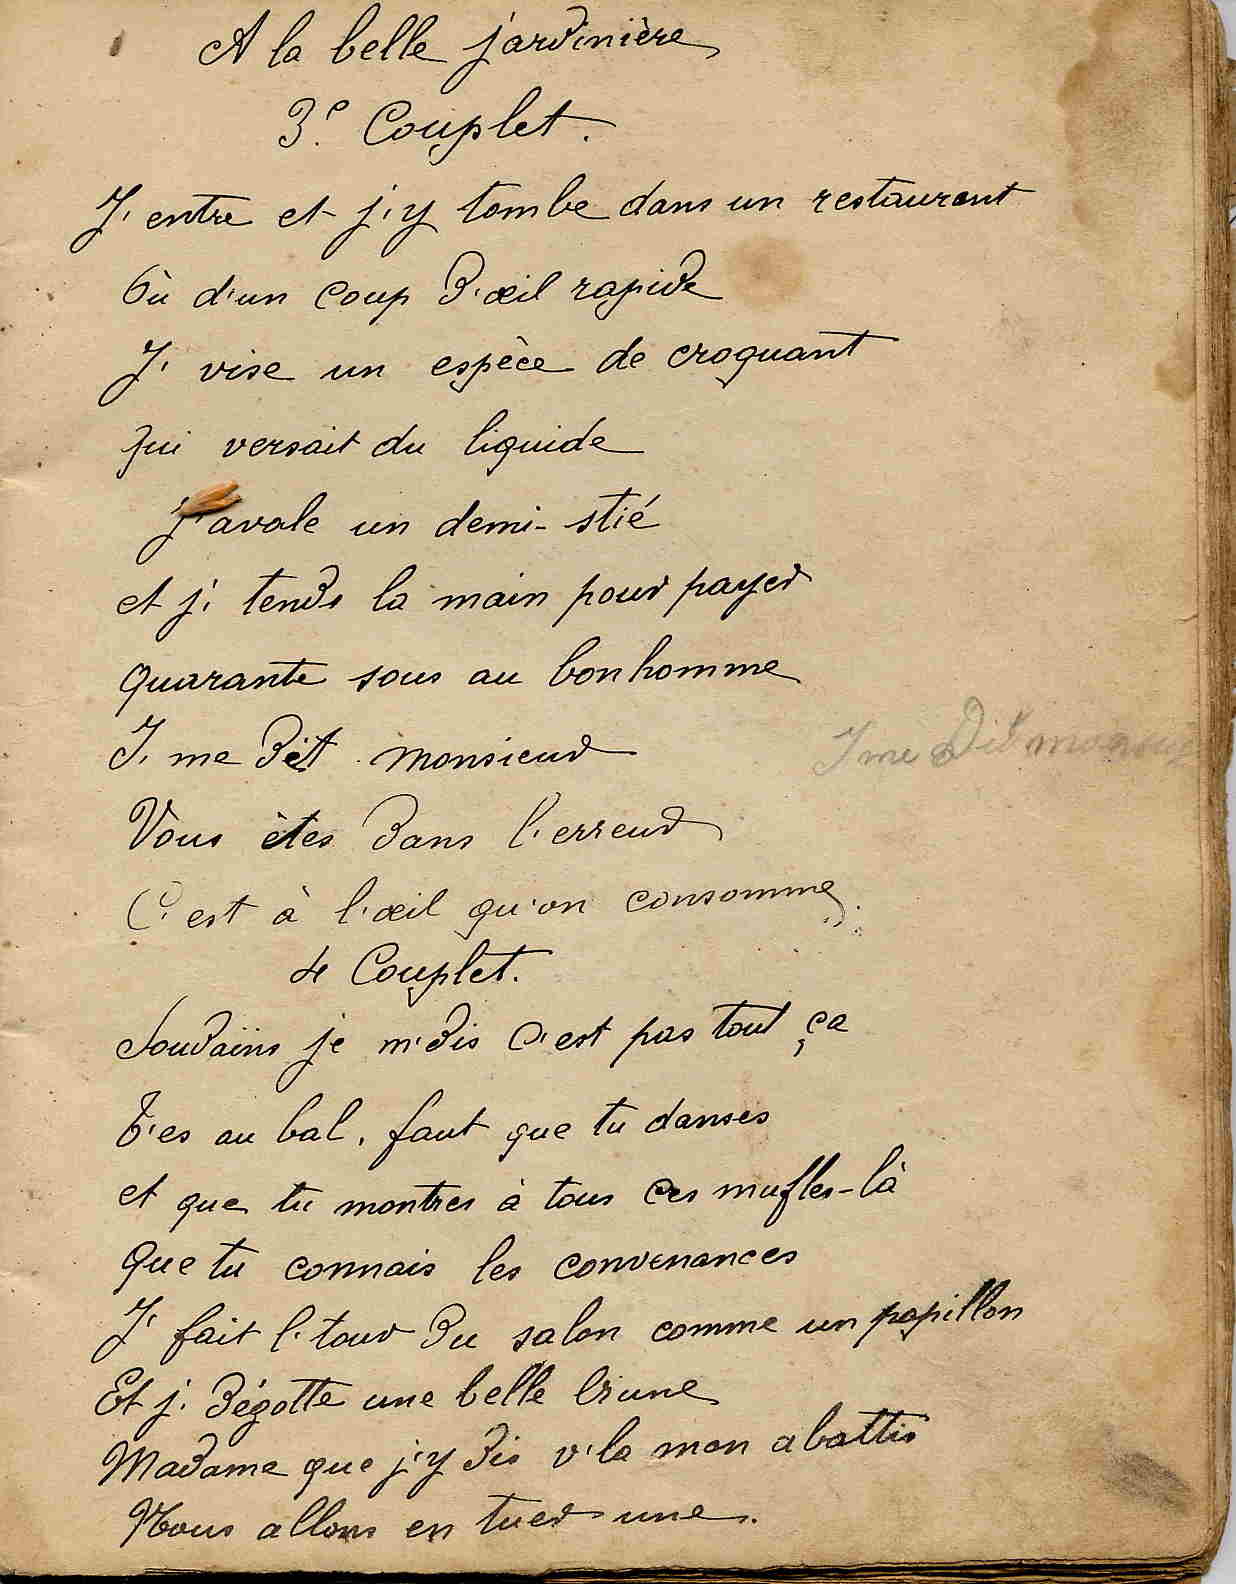 A la belle jardinière
3e Couplet.
J'entre et j'y tombe dans un restaurant
Où d'un coup d'œil rapide
J' vise un espèce de croquant
qui versait du liquide
J'avale un demi-stié
et j' tends la main pour payer
quarante sous au bonhomme
I' me dit monsieur
I me dit monsieur
Vous êtes dans l'erreur
C'est à l'œil qu'on consomme.
4e Couplet.
Soudains je m'dis C'est pas tout ça
T'es au bal, faut que tu danses
et que tu montres à tous ces mufles-là
que tu connais les convenances
J' fait l'tour du salon comme un papillon
Et j' dégotte une belle brune
Madame que j'y dis v'la mon abattis
Nous allons en tuer une.